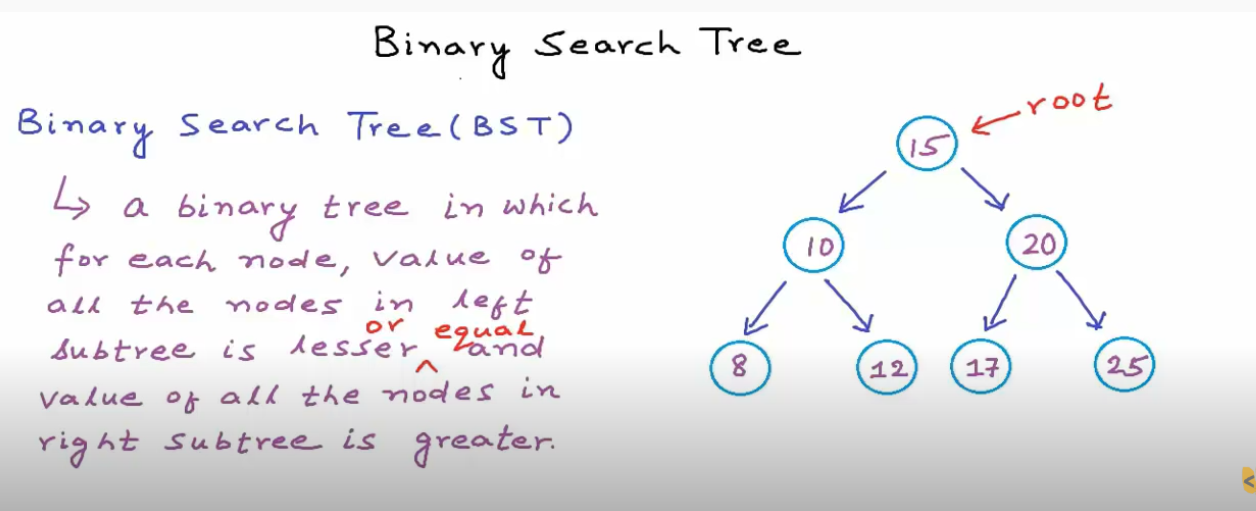 Binary Search Tree
Binary Search Tree (BST)
↳ a binary tree in which
for each node, value of
all the nodes in left
subtree is lesser or equal and
value of all the nodes in
right subtree is greater.
root
15
10 20
8 12 17 25
<